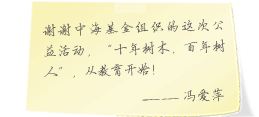 谢谢中海基金组织的这次公
益活动，“十年树木，百年树
人”，从教育开始！
——— 冯爱萍